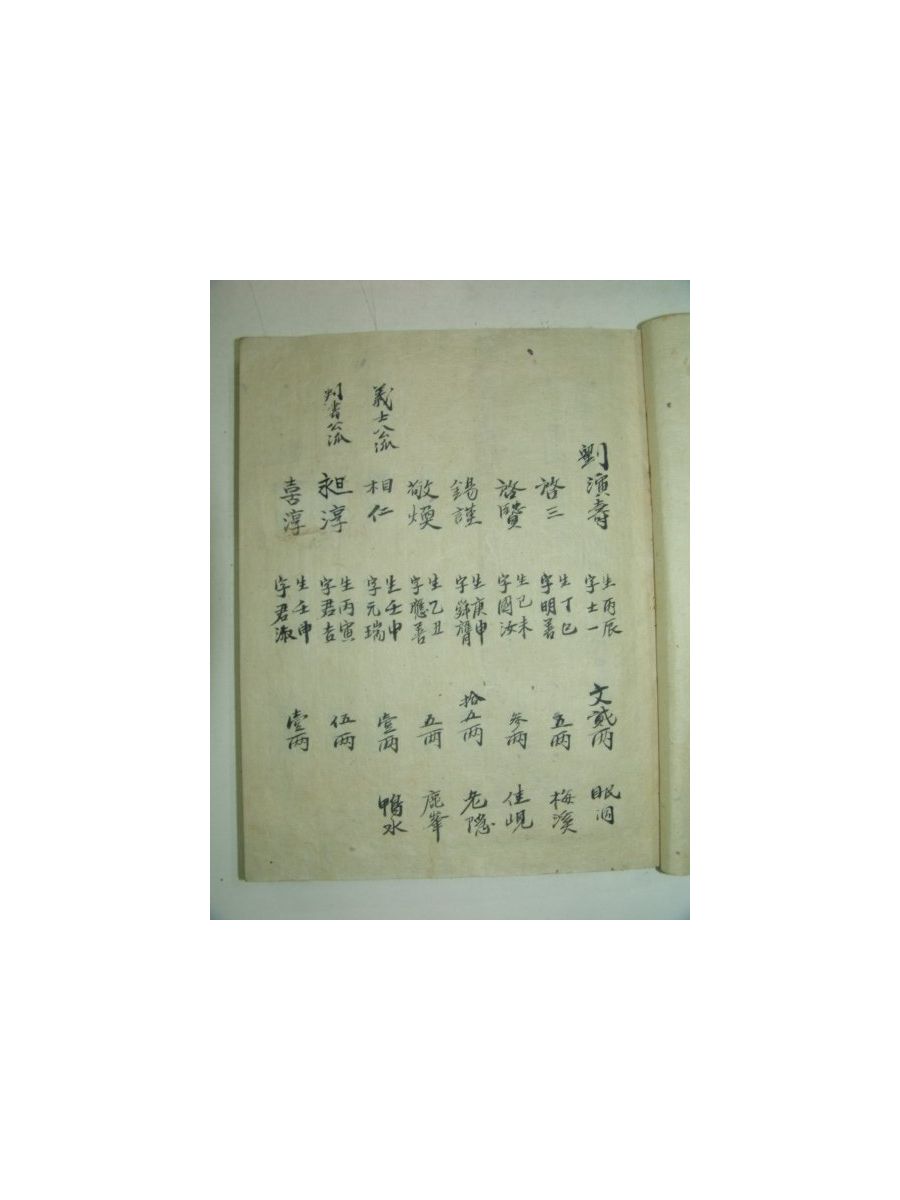 劉演壽 字士一 生丙辰 文貳兩 眠洞
啓三 字明善 生丁巳 五兩 梅溪
啓贊 字國汝 生己未 叅兩 佳峴
錫謹 字舜膺 生庚申 拾五兩 老隐
敬煥 字應善 生乙丑 五兩 鹿峯
義士公派 相仁 字元瑞 生壬申 壹兩 鴨水
判書公派 昶淳 字君吉 生丙寅 伍兩
喜淳 字君淑 生壬申 壹兩